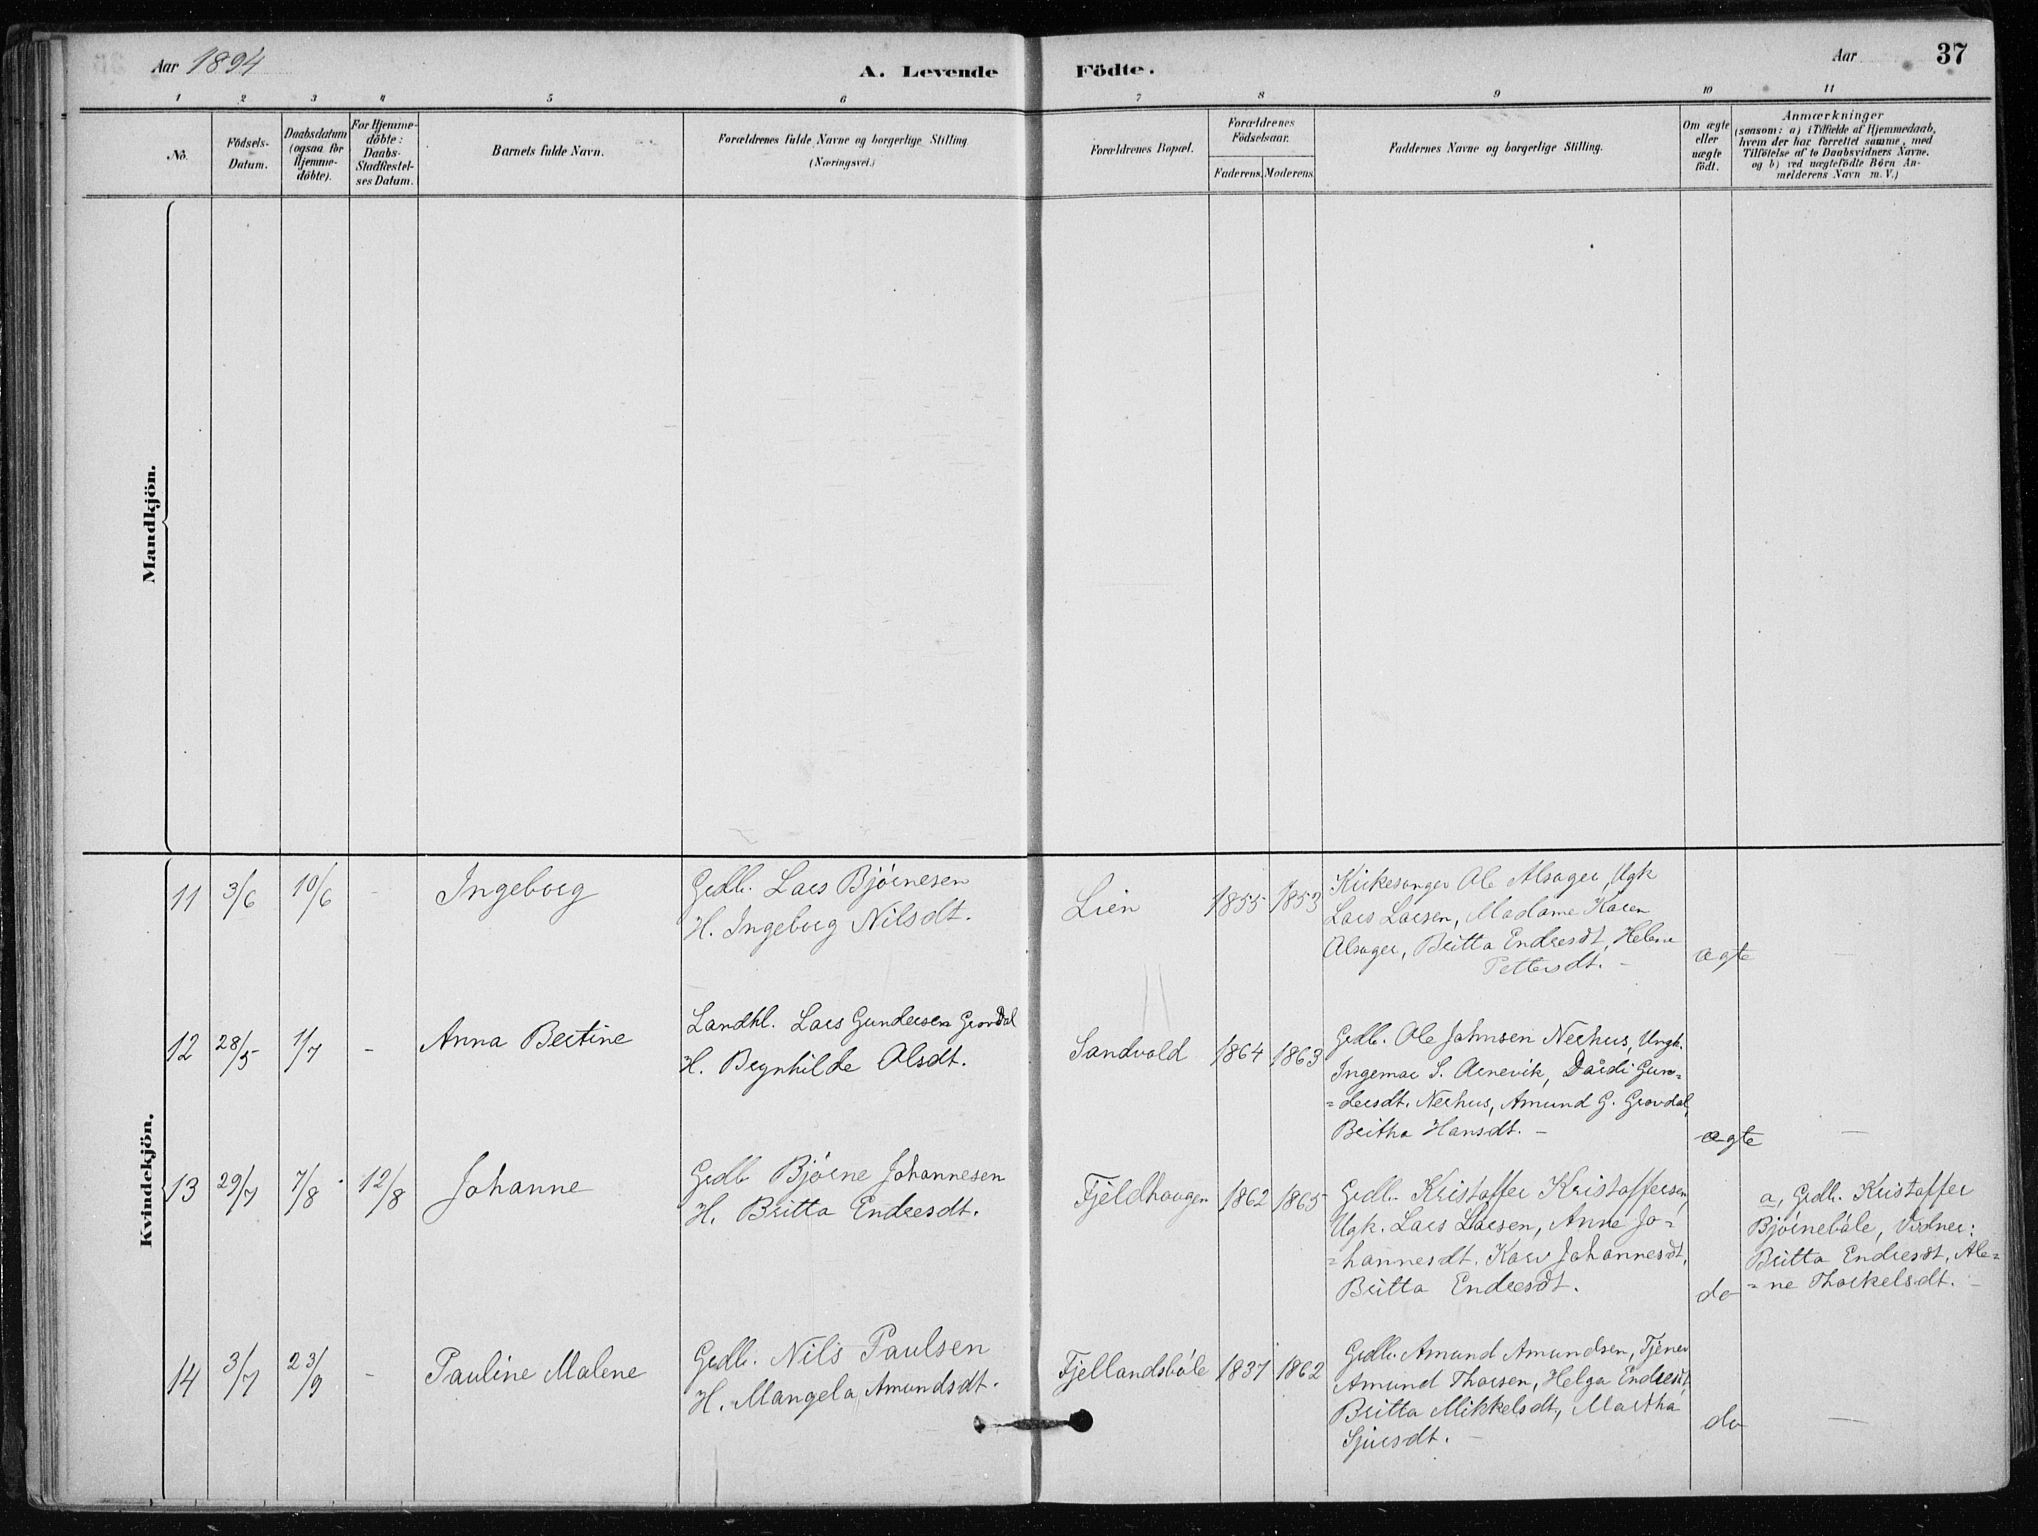 Aar 1894
A. Levende Födte.
Aar
37
1 2 3 4 5 6 7 8 9 10 11
No.
Födsels-
Datum.
Daabsdatum
(ogsaa for
Hjemme-
döbte).
For Hjemme-
döbte:
Daabs-
Stadfæstel-
ses Datum.
Barnets fulde Navn.
Forældrenes fulde Navne og borgerlige Stilling
(Næringsvei.)
Forældrenes Bopæl.
Forældrenes
Födselsaar.
Faderens. Moderens.
Faddernes Navne og borgerlige Stilling.
Om ægte
eller
uægte
födt.
Anmærkninger
(saasom: a) i Tilfælde af Hjemmedaab,
hvem der har forrettet samme, med
Tilföielse af to Daabsvidners Navne.
og b) ved uægtefödte Börn An-
melderens Navn m. V.)
Mandkjön.
Kvindekjön.
11 3/6 10/6 - Ingeborg
Grdb. Lars Bjørnesen
H. Ingeborg Nilsdt.
Lien 1855 1853
Kirkesanger Ole Alsager, Ugk
Lars Larsen, Madame Karen
Alsager, Britta Endresdt, Helene
Pettersdt. -
ægte -
12 28/5 1/7 - Anna Bertine
Landhl. Lars Gundersen Grovdal
H. Brynhilde Olsdt.
Sandvold 1864 1863
Grdb. Ole Johnsen Nerhus, Ungk.
Ingemar S. Arnevik, Dårdi Gun=
=dersdt. Nerhus, Amund G. Grovdal,
Britha Hansdt. -
ægte -
13 29/7 7/8 12/8 Johanne
Grdb Bjørne Johannesen
H. Britta Endresdt.
Fjeldhaugen 1862 1865
Grdb. Kristoffer Kristoffersen,
Ugk. Lars Larsen, Anne Jo=
=hannesdt. Kari Johannesdt,
Britta Endresdt.
do
a, Grdb. Kristoffer
Bjørnebåle, Vidner:
Britta Endresdt, Ale=
=ne Thorkelsdt. -
14 3/7 23/9 - Pauline Malene
Grdb. Nils Paulsen
H. Mangela Amundsdt.
Fjellandsbøle 1837 1862
Grdb. Amund Amundsen, Tjener
Amund Thorsen, Helga Endresdt,
Britta Mikkelsdt, Martha
Sjursdt. -
do -